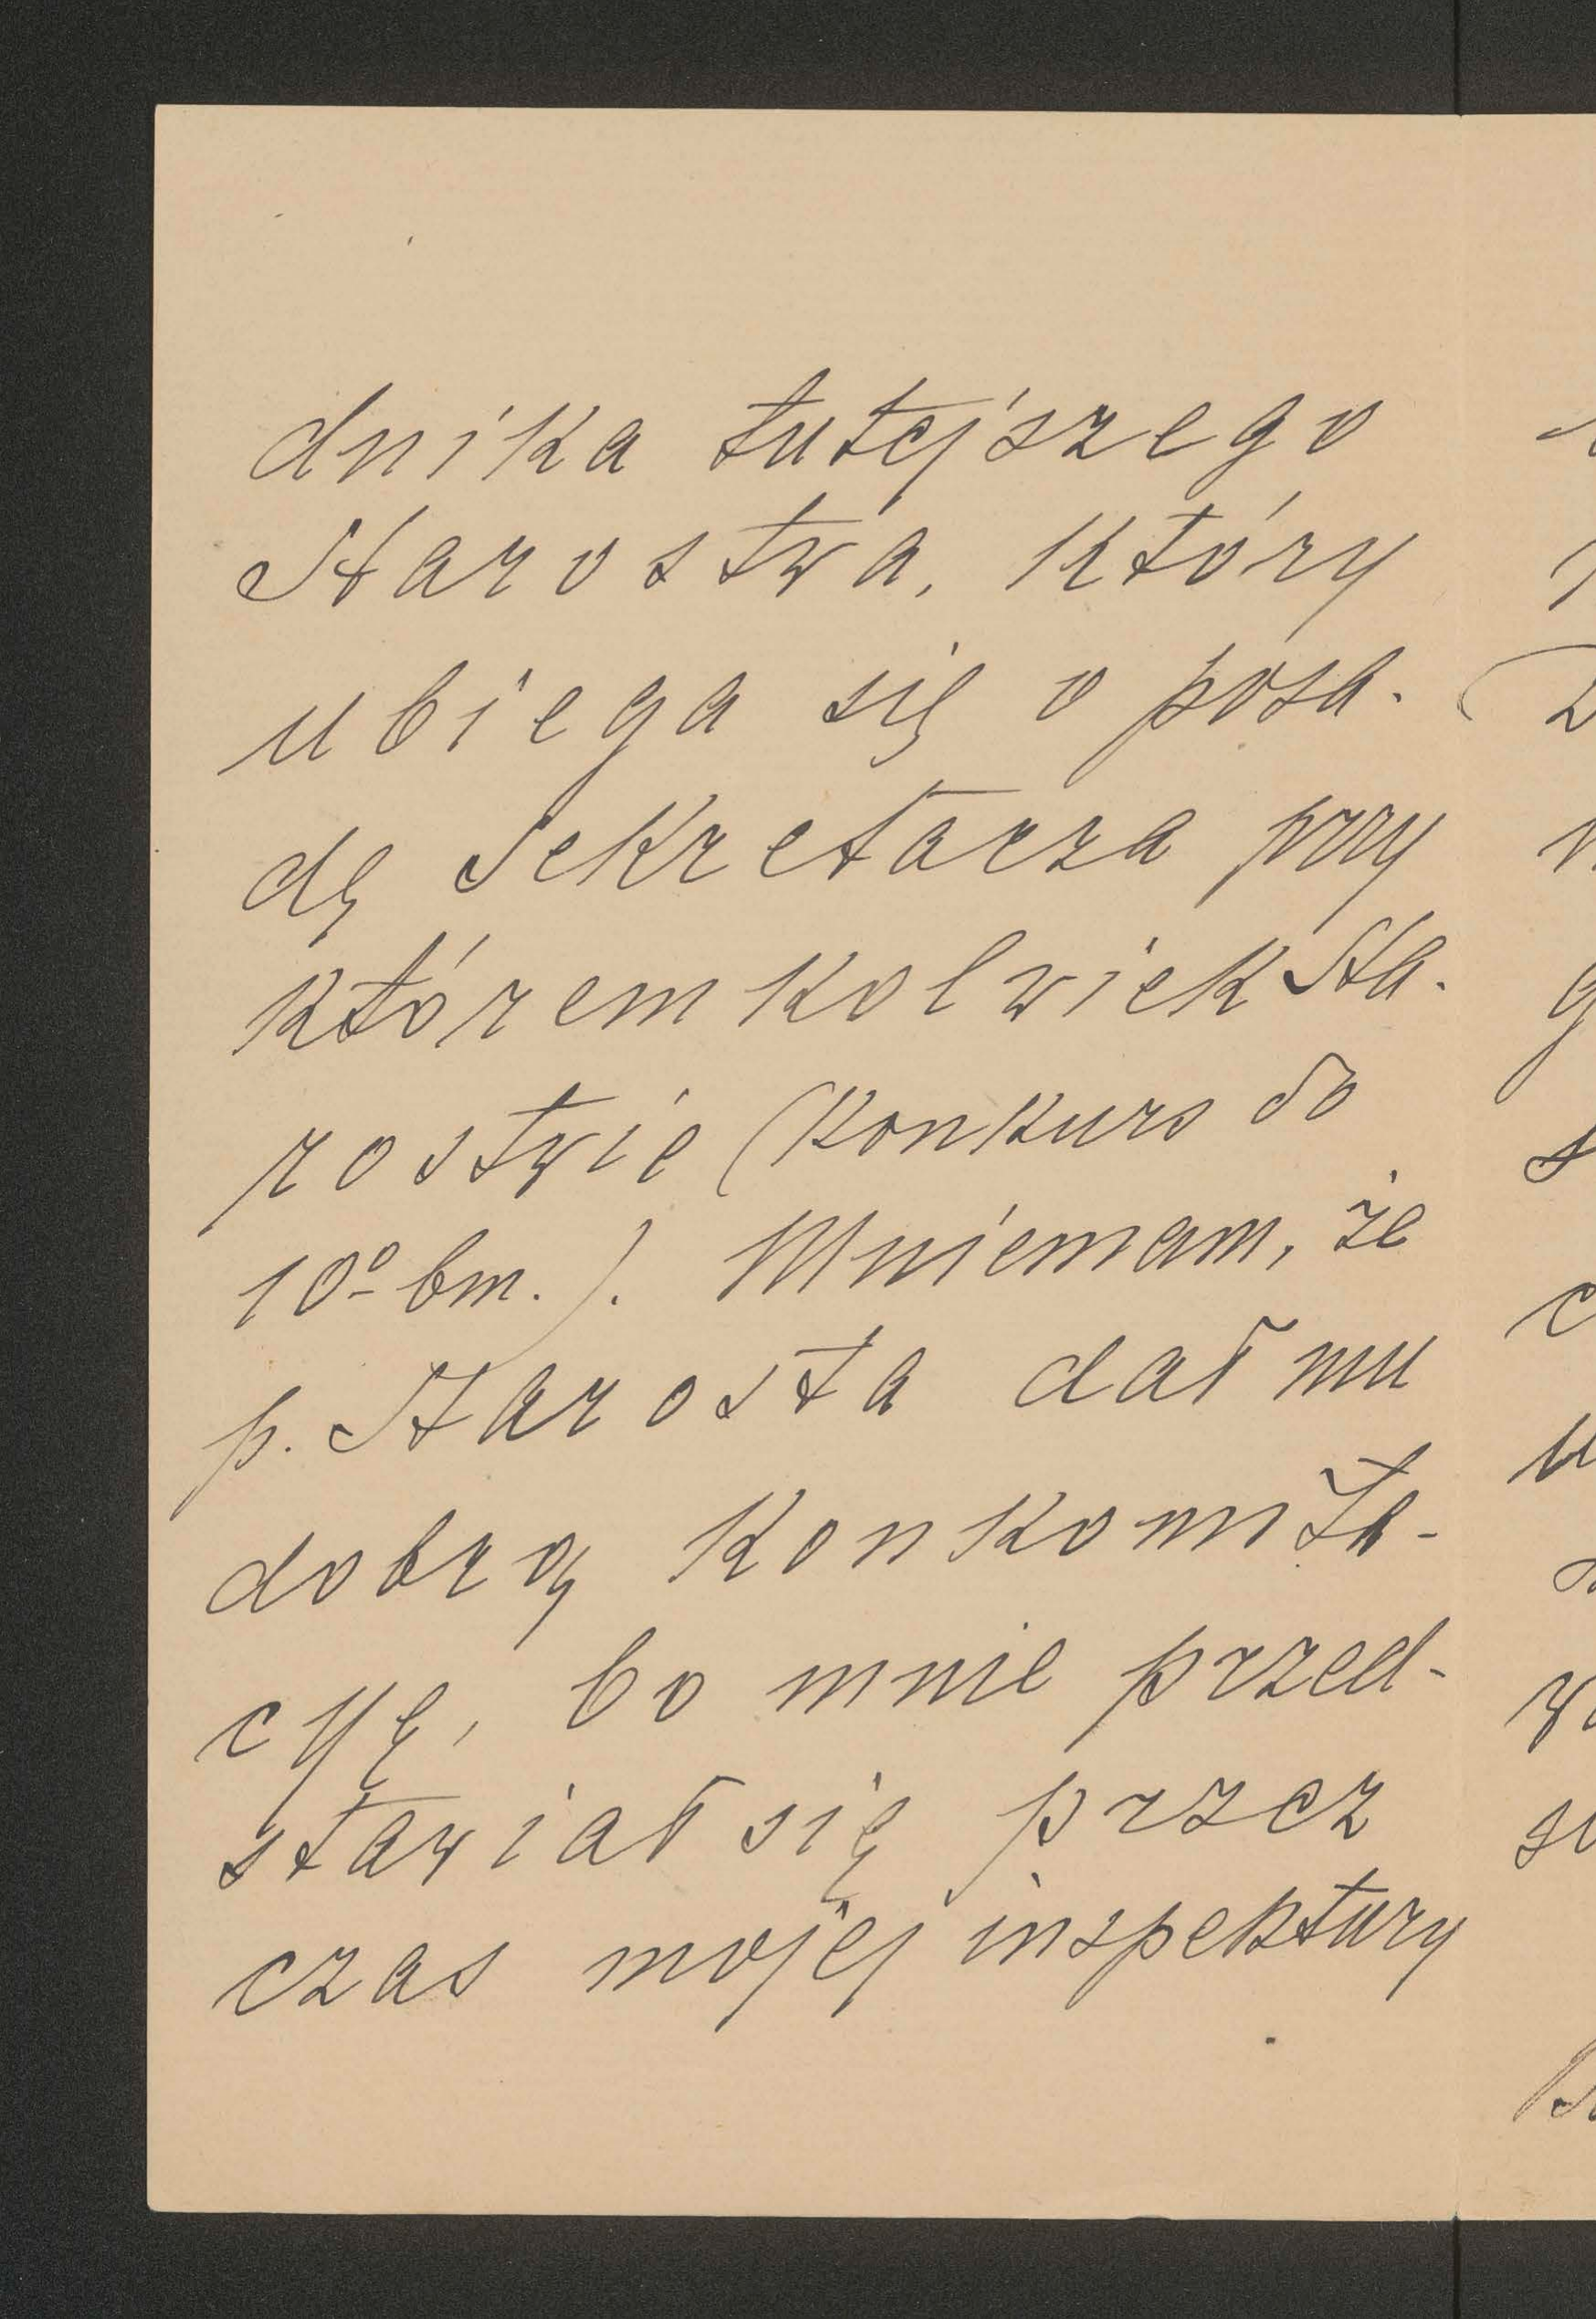 dnika tutejszego
Starostwa, który
ubiega się o posa-
dę Sekretarza przy
któremkolwiek Sta-
rostwie (Konkurs do
10º bm.). Mniemam, że
p. Starosta dał mu
dobrą Konkomita-
cyę, bo mnie przed-
stawiał się przez
czas mojej inspektury